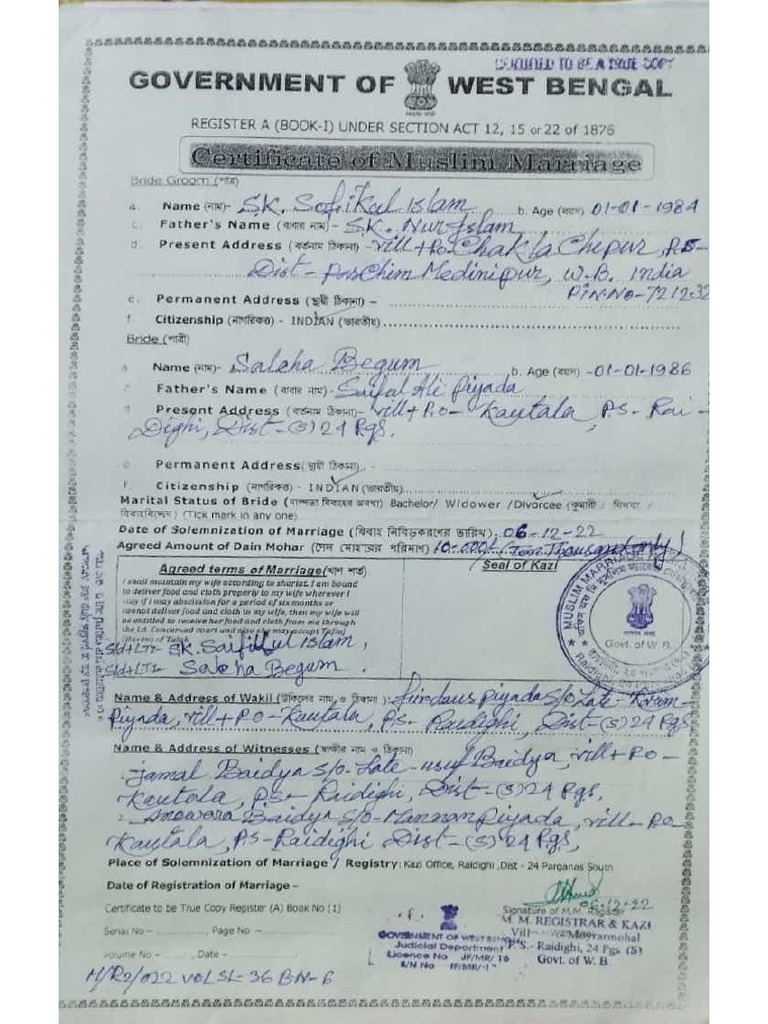 CERTIFIED TO BE A TRUE COPY
GOVERNMENT OF WEST BENGAL
REGISTER A (BOOK-I) UNDER SECTION ACT 12, 15 or 22 of 1876
Certificate of Muslim Marriage
Bride Groom (পাত্র)
a. Name (নাম)- SK. Sofikul Islam b. Age (বয়স) 01-01-1984
c. Father's Name (বাবার নাম)- SK. Nur Islam
d. Present Address (বর্তমান ঠিকানা)- Vill+Po Chakla Chipur, P.S-
Dist- Paschim Medinipur, W.B. India
PIN-NO-721232
e. Permanent Address (স্থায়ী ঠিকানা) -
f. Citizenship (নাগরিকত্ব) - INDIAN (ভারতীয়)
Bride (পাত্রী)
a Name (নাম)- Saleha Begum b. Age (বয়স) -01-01-1986
c Father's Name (বাবার নাম)- Saifal Ali Piyada
d Present Address (বর্তমান ঠিকানা)- Vill+P.O- Kautala, P.S- Rai-
Dighi, Dist-(S) 24 Pgs.
e Permanent Address (স্থায়ী ঠিকানা) -
f. Citizenship (নাগরিকত্ব) - INDIAN (ভারতীয়)
Marital Status of Bride (দাম্পত্য বিবাহের অবস্থা) Bachelor/ Widower /Divorcee (কুমারী / বিধবা /
বিবাহবিচ্ছেদ) (Tick mark in any one)
Date of Solemnization of Marriage (বিবাহ নিবিড়করণের তারিখ) 06-12-22
Agreed Amount of Dain Mohar (দেন মোহরের পরিমাণ) 10-000/- (Ten Thousand only)
Agreed terms of Marriage(খাশ শর্ত)
Seal of Kazi
I shall maintain my wife according to shariat. I am bound
to deliver food and cloth properly to my wife wherever I
stay if I may abscission for a period of six months or
cannot deliver food and cloth to my wife, then my wife will
be entitled to receive her food and cloth from me through
the Ld. Concerned court and also she may accept
of Talak
MUSLIM MARRIAGE
Govt. of W. B
Sd/-LTI- SK. Saifikul Islam,
Sd/-LTI- Saleha Begum.
Name & Address of Wakil (উকিলের নাম ও ঠিকানা): Firdaus Piyada S/o Late-
Piyada, Vill+P.O- Kautala, P.S- Raidighi, Dist-(S) 24 Pgs
Name & Address of Witnesses (স্বাক্ষীর নাম ও ঠিকানা)
Jamal Baidya S/o- Late- Usuf Baidya, Vill+P.O-
Kautala, P.S- Raidighi, Dist-(S) 24 Pgs.
2. Anowara Baidya S/o- Mannan Piyada, Vill-P.O-
Kautala, P.S-Raidighi Dist-(S) 24 Pgs,
Place of Solemnization of Marriage / Registry: Kazi Office, Raidighi, Dist - 24 Parganas South
Date of Registration of Marriage -
06-12-22
Certificate to be True Copy Register (A) Book No (1)
Signature of M.M. Registrar
M. M. REGISTRAR & KAZI
Serial No - Page No -
GOVERNMENT OF WEST BENGAL
Vill- Moyrarmohal
Judicial Department
P.S.- Raidighi, 24 Pgs (S)
Volume No - , Date -
Licence No JF/MR/16
Govt. of W. B
S/N No
M/R2/022 VOL SL-36 BN-6